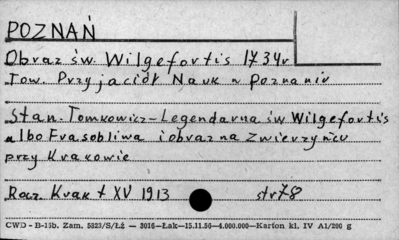 POZNAŃ
Obraz św. Wilgefortis 1734r
Tow. Przyjaciół Nauk w Poznaniu
Stan. Tomkowicz - Legendarna św Wilgefortis
albo Frasobliwa i obraz na Zwierzyńcu
przy Krakowie
Rocz. Krak t XV 1913 str 78
CWD - B-15b. Zam. 5823/S/Łź — 3016—Łak—15.11.50—4.000.000—Karton kl. IV A1/200 g